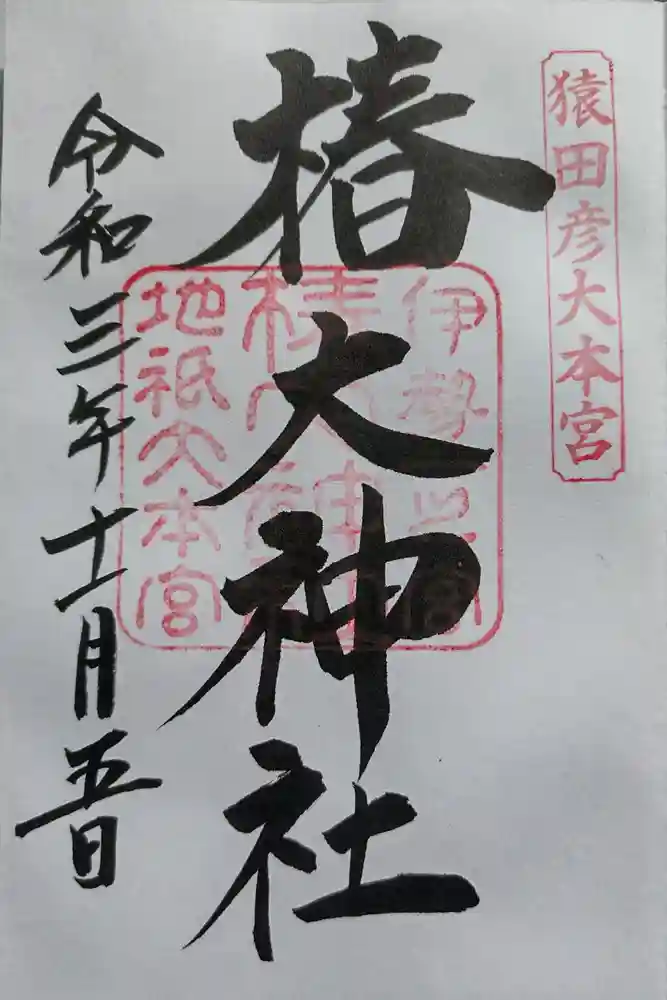 猿田彦大本宮
椿大神社
伊勢一之宮
椿大神社
地祇大本宮
令和三年十一月五日